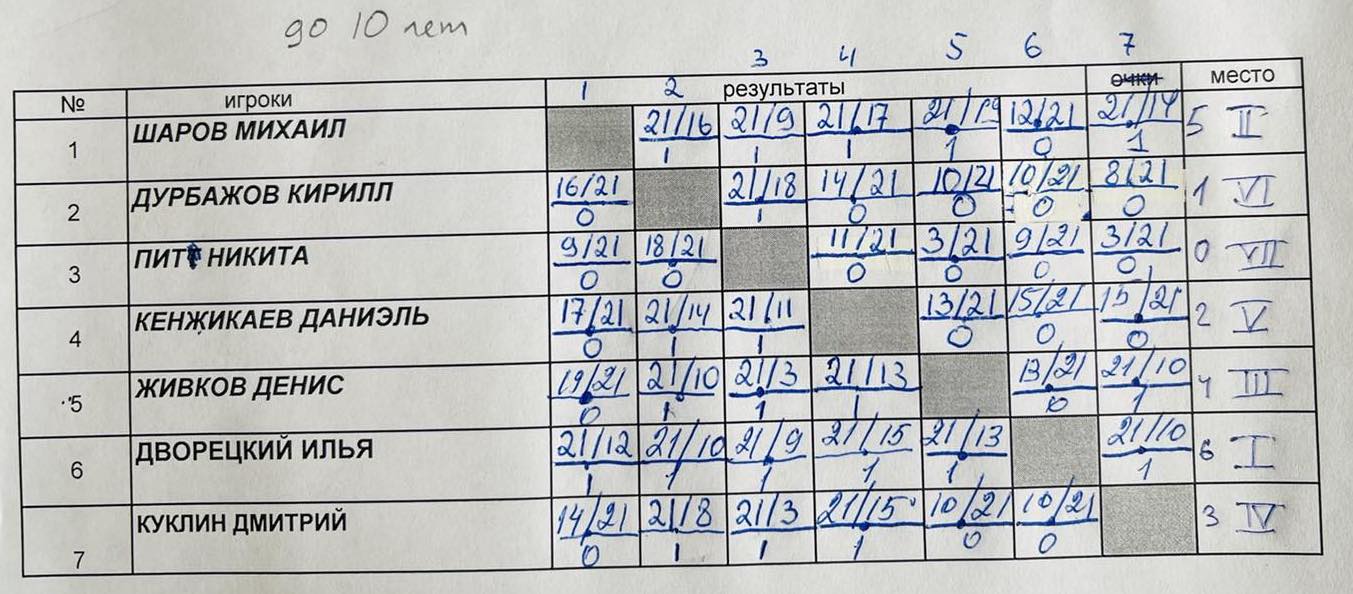 до 10 лет
3 4 5 6 7
№ игроки 1 2 результаты очки место
1 ШАРОВ МИХАИЛ 21/16 21/9 21/17 21/19 12/21 21/14 5 II
1 1 1 1 0 1
2 ДУРБАЖОВ КИРИЛЛ 16/21 21/18 14/21 10/21 10/21 8/21 1 VI
0 1 0 0 0 0
3 ПИТ НИКИТА 9/21 18/21 11/21 3/21 9/21 3/21 0 VII
0 0 0 0 0 0
4 КЕНЖИКАЕВ ДАНИЭЛЬ 17/21 21/14 21/11 13/21 15/21 15/21 2 V
0 1 1 0 0 0
5 ЖИВКОВ ДЕНИС 19/21 21/10 21/3 21/13 13/21 21/10 4 III
0 1 1 1 0 1
6 ДВОРЕЦКИЙ ИЛЬЯ 21/12 21/10 21/9 21/15 21/13 21/10 6 I
1 1 1 1 1 1
7 КУКЛИН ДМИТРИЙ 14/21 21/8 21/3 21/15 10/21 10/21 3 IV
0 1 1 1 0 0